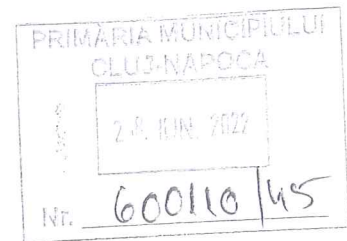 PRIMĂRIA MUNICIPIULUI
CLUJ-NAPOCA
IUN. 2022
Nr. 600110/45